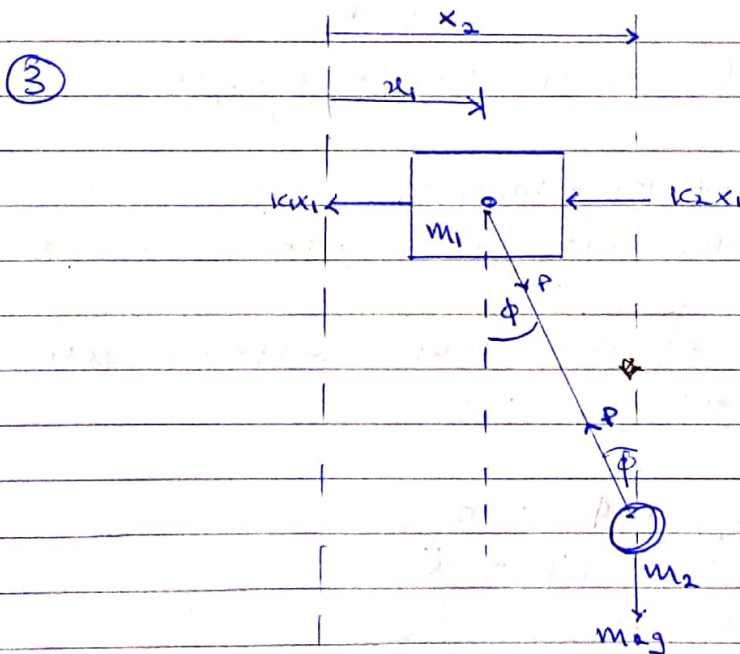 x₂
③
x₁
K₁x₁
K₂x₁
m₁
P
φ
P
φ
m₂
m₂g